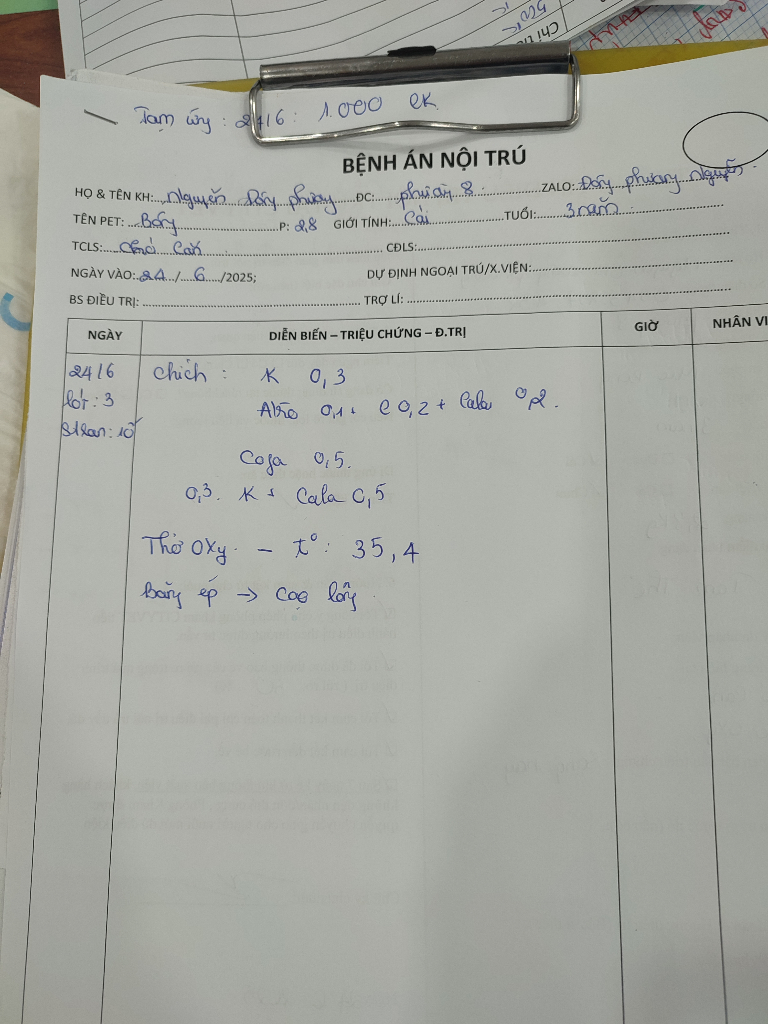 Tạm ứng : 24/6 : 1.000 ck
BỆNH ÁN NỘI TRÚ
HỌ & TÊN KH: Nguyễn Đông Phương ĐC: phường 8 ZALO: Đông phương Nguyễn
TÊN PET: Bông P: 2,8 GIỚI TÍNH: Cái TUỔI: 3 năm
TCLS: Chó Cắn CĐLS:
NGÀY VÀO: 24 / 6 /2025; DỰ ĐỊNH NGOẠI TRÚ/X.VIỆN:
BS ĐIỀU TRỊ: TRỢ LÍ:
NGÀY DIỄN BIẾN – TRIỆU CHỨNG – Đ.TRỊ GIỜ NHÂN VI
24/6 Chích : K 0,3
lót : 3 Atro 0,1 + C 0,2 + Cala 0,2.
Coja 0,5.
0,3. K + Cala 0,5
Thở OXy – t° : 35,4
Băng ép → Cạo lông